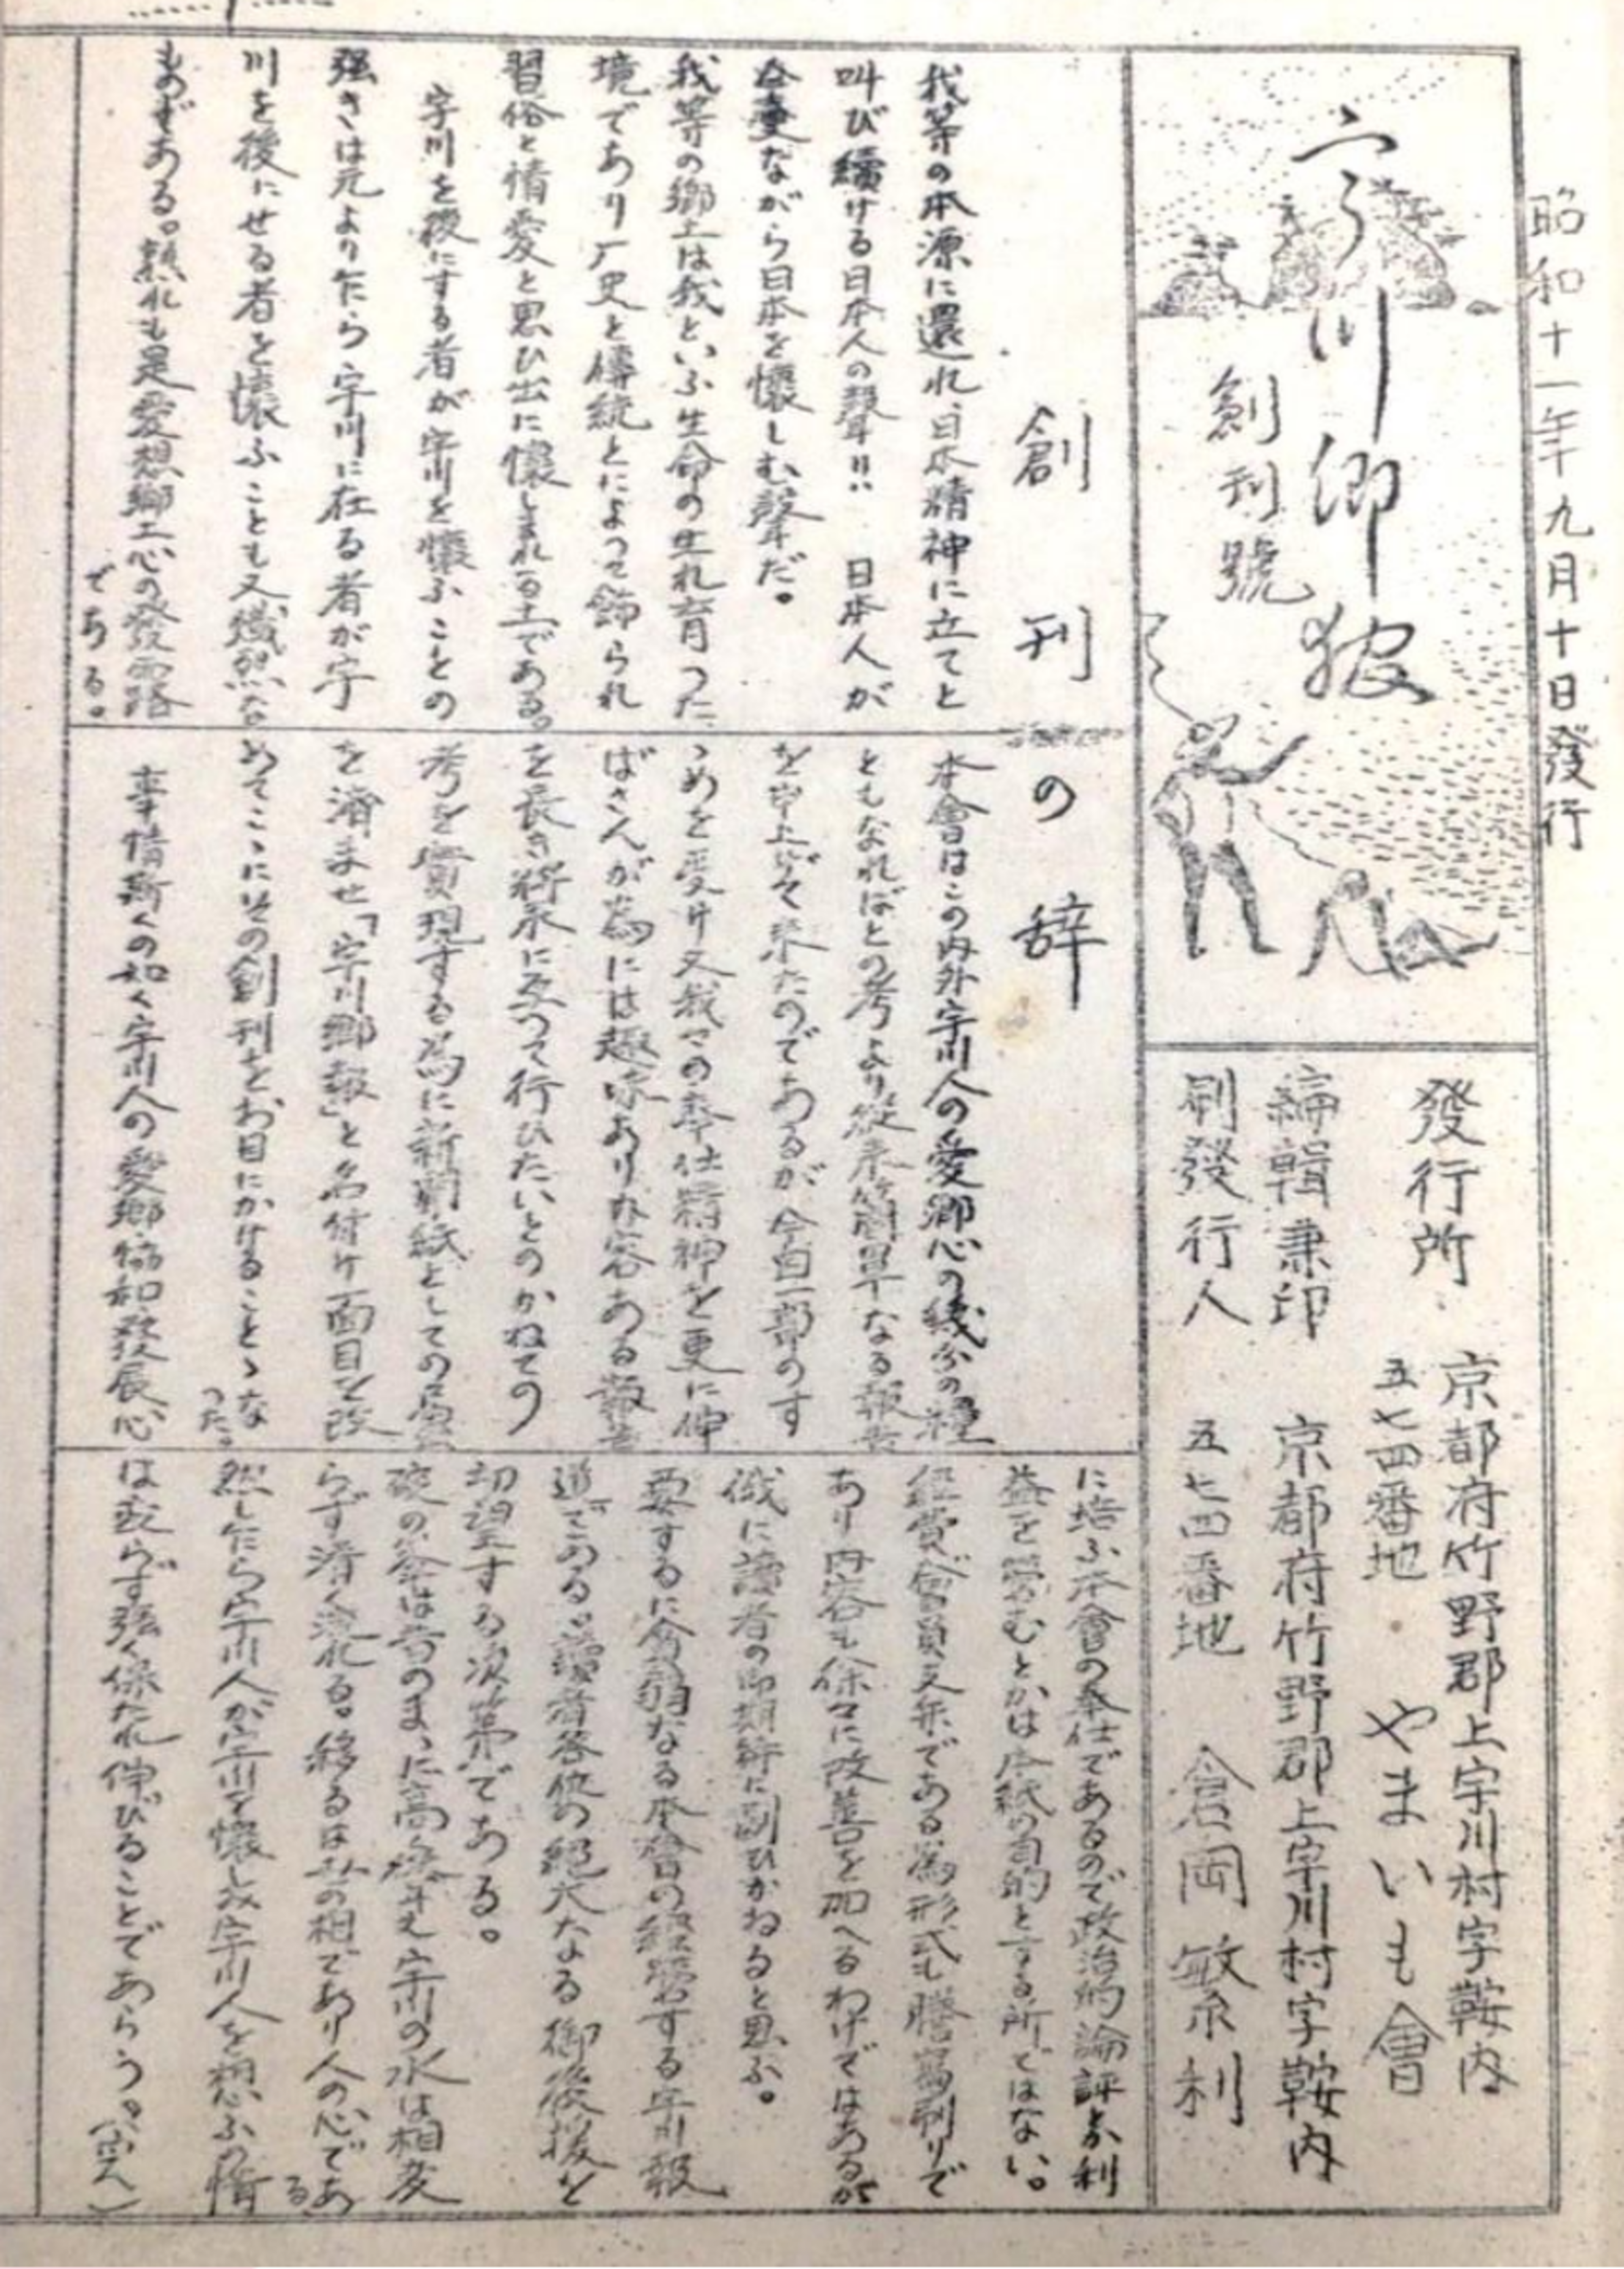 昭和十一年九月十日發行
宇川郷報
創刊號
發行所
京都府竹野郡上宇川村字鞍内
五七四番地
やまいも會
編輯兼印
刷發行人
京都府竹野郡上宇川村字鞍内
五七四番地
倉岡敏利
創刊の辞
我等の本源に還れ、日本精神に立てと
叫び續ける日本人の聲!! 日本人が
今更ながら日本を懷しむ聲だ。
我等の郷土は我といふ生命の生れ育つた
境であり厂史と傳統とによつて飾られ
習俗と情愛と思ひ出に懷しまれる土である。
宇川を後にする者が宇川を懷ふことの
强さは元より乍ら宇川に在る者が宇
川を後にせる者を懷ふことも又熾烈な
ものがある。熟れも是愛想郷土心の發露
である。
本會はこの内外宇川人の愛郷心の幾分の糧
ともなればとの考より從來簡單なる報告
を申上げて來たのであるが今自一部のす
ゝめを受け又我々の奉仕精神を更に伸
ばさんが為には趣味あり内容ある報告
を長き將來に亙つて行ひたいとのかねての
考を實現する為に新聞紙としての届出
を済ませ「宇川郷報」と名付け面目を改
めてこゝにその創刊をお目にかけることゝな
つた。
事情斯くの如く宇川人の愛郷協和發展心
に培ふ本會の奉仕であるので政治的論評とか利
益を營むとかは本紙の目的とする所ではない。
經費が會員支弁である為形式も謄寫刷りで
あり内容も徐々に改善を加へるわけではあるが
俄に讀者の御期待に副ひかねると思ふ。
要するに貧弱なる本會の經營する宇川報
道である。讀者各位の絶大なる御後援を
切望する次第である。
破の命は昔のまゝに高く聳え宇川の水は相変
らず清く流れる。移るは世の相であり人の心であ
る
然し乍ら宇川人が宇川を懷しみ宇川人を想ふの情
は変らず强く保たれ伸びることであらう。